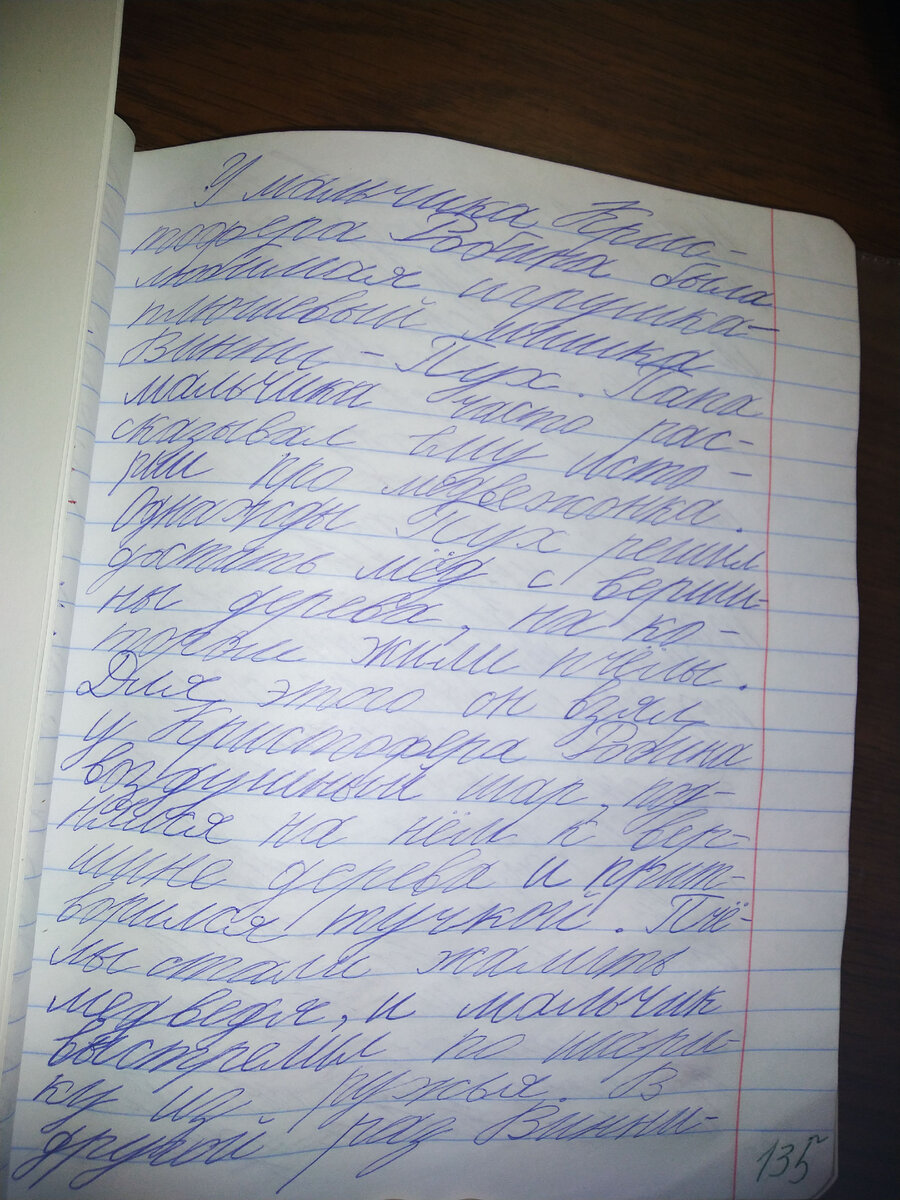 У мальчика Крис-
тофера Робина была
любимая игрушка-
плюшевый мишка
Винни-Пух. Папа
мальчика часто рас-
сказывал ему исто-
рии про медвежонка.
Однажды Пух решил
достать мёд с верши-
ны дерева, на ко-
тором жили пчёлы.
Для этого он взял
у Кристофера Робина
воздушный шар, под-
нялся на нём к вер-
шине дерева и прит-
ворился тучкой. Пчё-
лы стали жалить
медведя, и мальчик
выстрелил по шари-
ку из ружья. В
другой раз Винни-
135